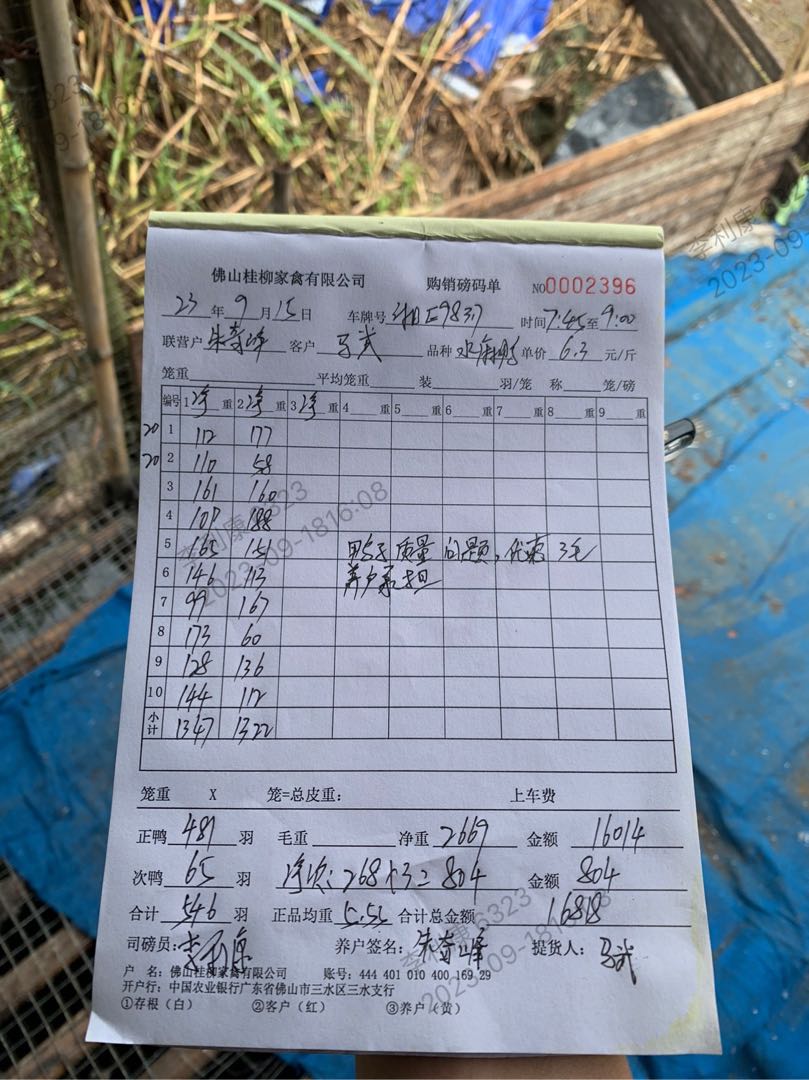 佛山桂柳家禽有限公司 购销磅码单 NO0002396
23年9月15日 车牌号 湘E9837 时间7:45至9:00
联营户 朱奇峰 客户 马武 品种 单价 6.3 元/斤
笼重 平均笼重 装 羽/笼 称 笼/磅
编号 1 净 重 2 净 重 3 净 重 4 重 5 重 6 重 7 重 8 重 9 重
20 1 112 177
20 2 110 58
3 161 160
4 107 188
5 165 151 质量问题,优惠3毛
6 146 113 养户承担
7 99 167
8 173 60
9 128 136
10 144 112
小计 1347 1322
笼重 X 笼=总皮重: 上车费
正鸭 481 羽 毛重 净重 2669 金额 16014
次鸭 65 羽 净次:268×3=804 金额 804
合计 546 羽 正品均重 5.55 合计总金额 16818
司磅员:李利康 养户签名:朱奇峰 提货人:马武
户 名:佛山桂柳家禽有限公司 账号:444 401 010 400 169 29
开户行:中国农业银行广东省佛山市三水区三水支行
①存根(白) ②客户(红) ③养户(黄)
李利康 6323
2023-09-18 16:08